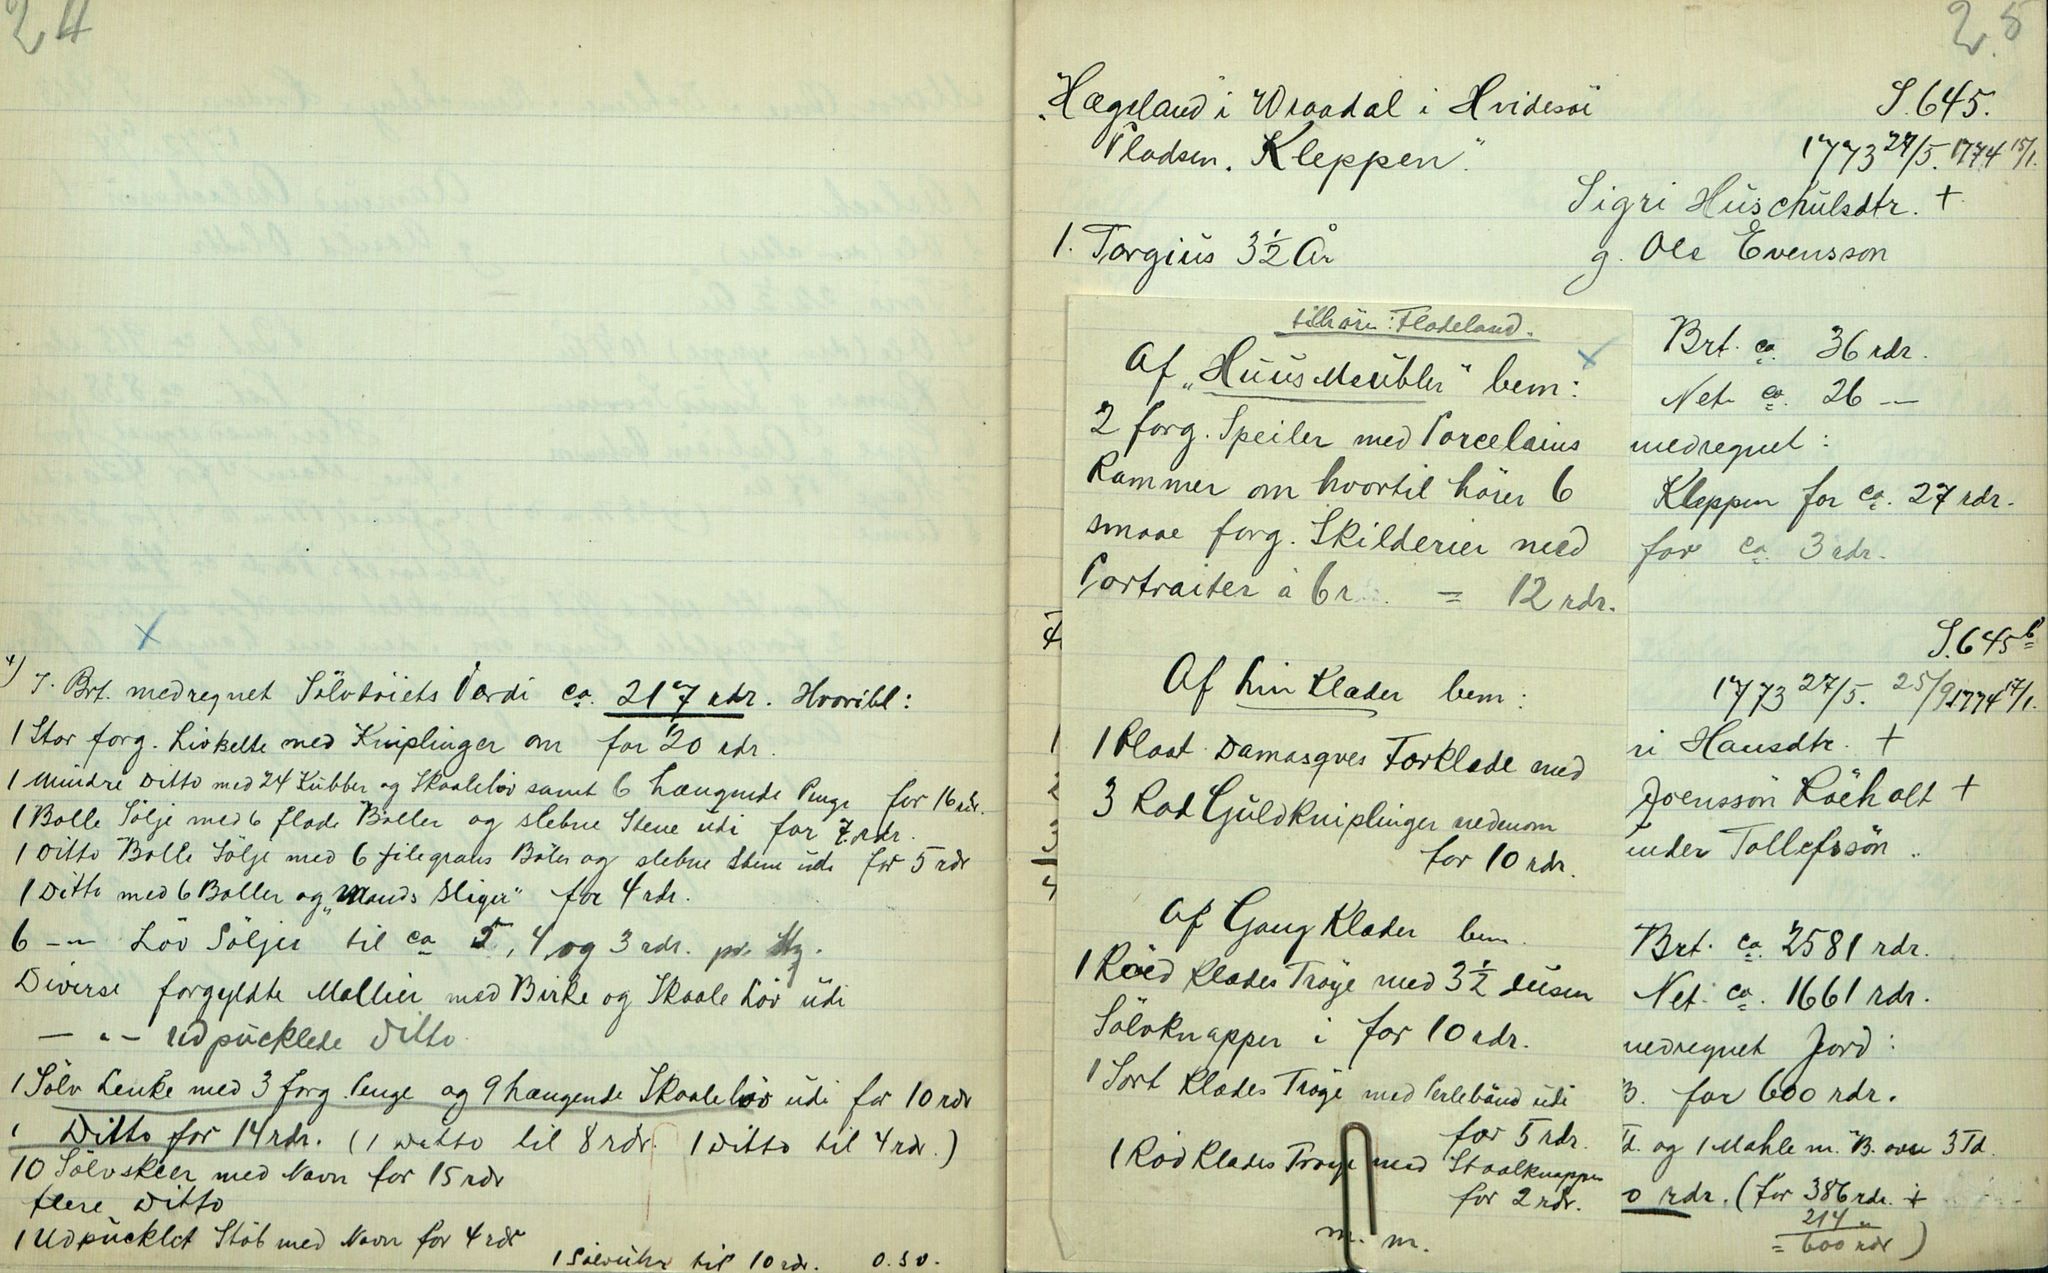 24
4) I. Brt. medregnet Sölvtöiets Værdi ca. 217 rdr. Hvoribl:
1 Stor forg. Livkette med Kniplinger om for 20 rdr.
1 Mindre Ditto med 24 Kubber og Skaaleløv samt 6 hængende Penge for 16 rdr.
1 Bolle Sölje med 6 flade Boller og slebne Stene udi for 7 rdr.
1 Ditto Bolle Sölje med 6 filegrans Boler og slebne Stene udi for 5 rdr
1 Ditto med 6 Boller og „Mands Sliger" for 4 rdr.
6 -"- Löv Söljer til ca 5, 4 og 3 rdr. pr. Stz.
Diverse forgyldte Mallier med Birke og Skaale Löv udi
- " - udpucklede Ditto
1 Sölv Lenke med 3 forg. Penge og 9 hængende Skaaleløv udi for 10 rdr
1 Ditto for 14 rdr. (1 Ditto til 8 rdr. 1 Ditto til 4 rdr.)
10 Sölvskeer med Navn for 15 rdr
flere Ditto
1 Udpucklet Stöb med Navn for 4 rdr
1 Sölvuhr til 10 rdr. o.s.v.
25
„Hægeland i Wraadal i Hvidesöe S. 645.
Pladsen „Kleppen". 1773 27/5. 1774 15/1.
Sigri Huschulsdtr. +
1. Torgius 3½ År g. Ole Evensson
tilhörer: Fladeland.
Af „Huus Meubler" bem:
2 forg. Speiler med Porcelains
Rammer om hvortil hörer 6
smaae forg. Skilderier med
Portraiter à 6 r = 12 rdr.
Af Lin Klæder bem:
1 Blaat Damasqves Forklæde med
3 Rad Guldkniplinger nedenom
for 10 rdr.
Af Gang Klæder bem.
1 Röed Klædes Tröye med 3½ dusin
Sölvknapper i for 10 rdr.
1 Sort Klædes Tröje med Perlebånd udi
for 5 rdr.
1 Röd Klædes Tröye med Staalknapper
for 2 rdr.
m. m.
Brt. ca. 36 rdr.
Net. ca. 26 —
medregnet:
Kleppen for ca. 27 rdr.
for ca. 3 rdr.
S. 645 b
1773 27/5. 25/9 1774 17/1.
ri Hansdtr. +
Joensson Röeholt +
under Tollefssön
Brt. ca. 2581 rdr.
Net. ca. 1661 rdr.
medregnet Jord:
B. for 600 rdr.
Td. og 1 Mahle m. B. over 3 Td.
0 rdr. (for 386 rdr. +
214 "
= 600 rdr)
1
2
3
4